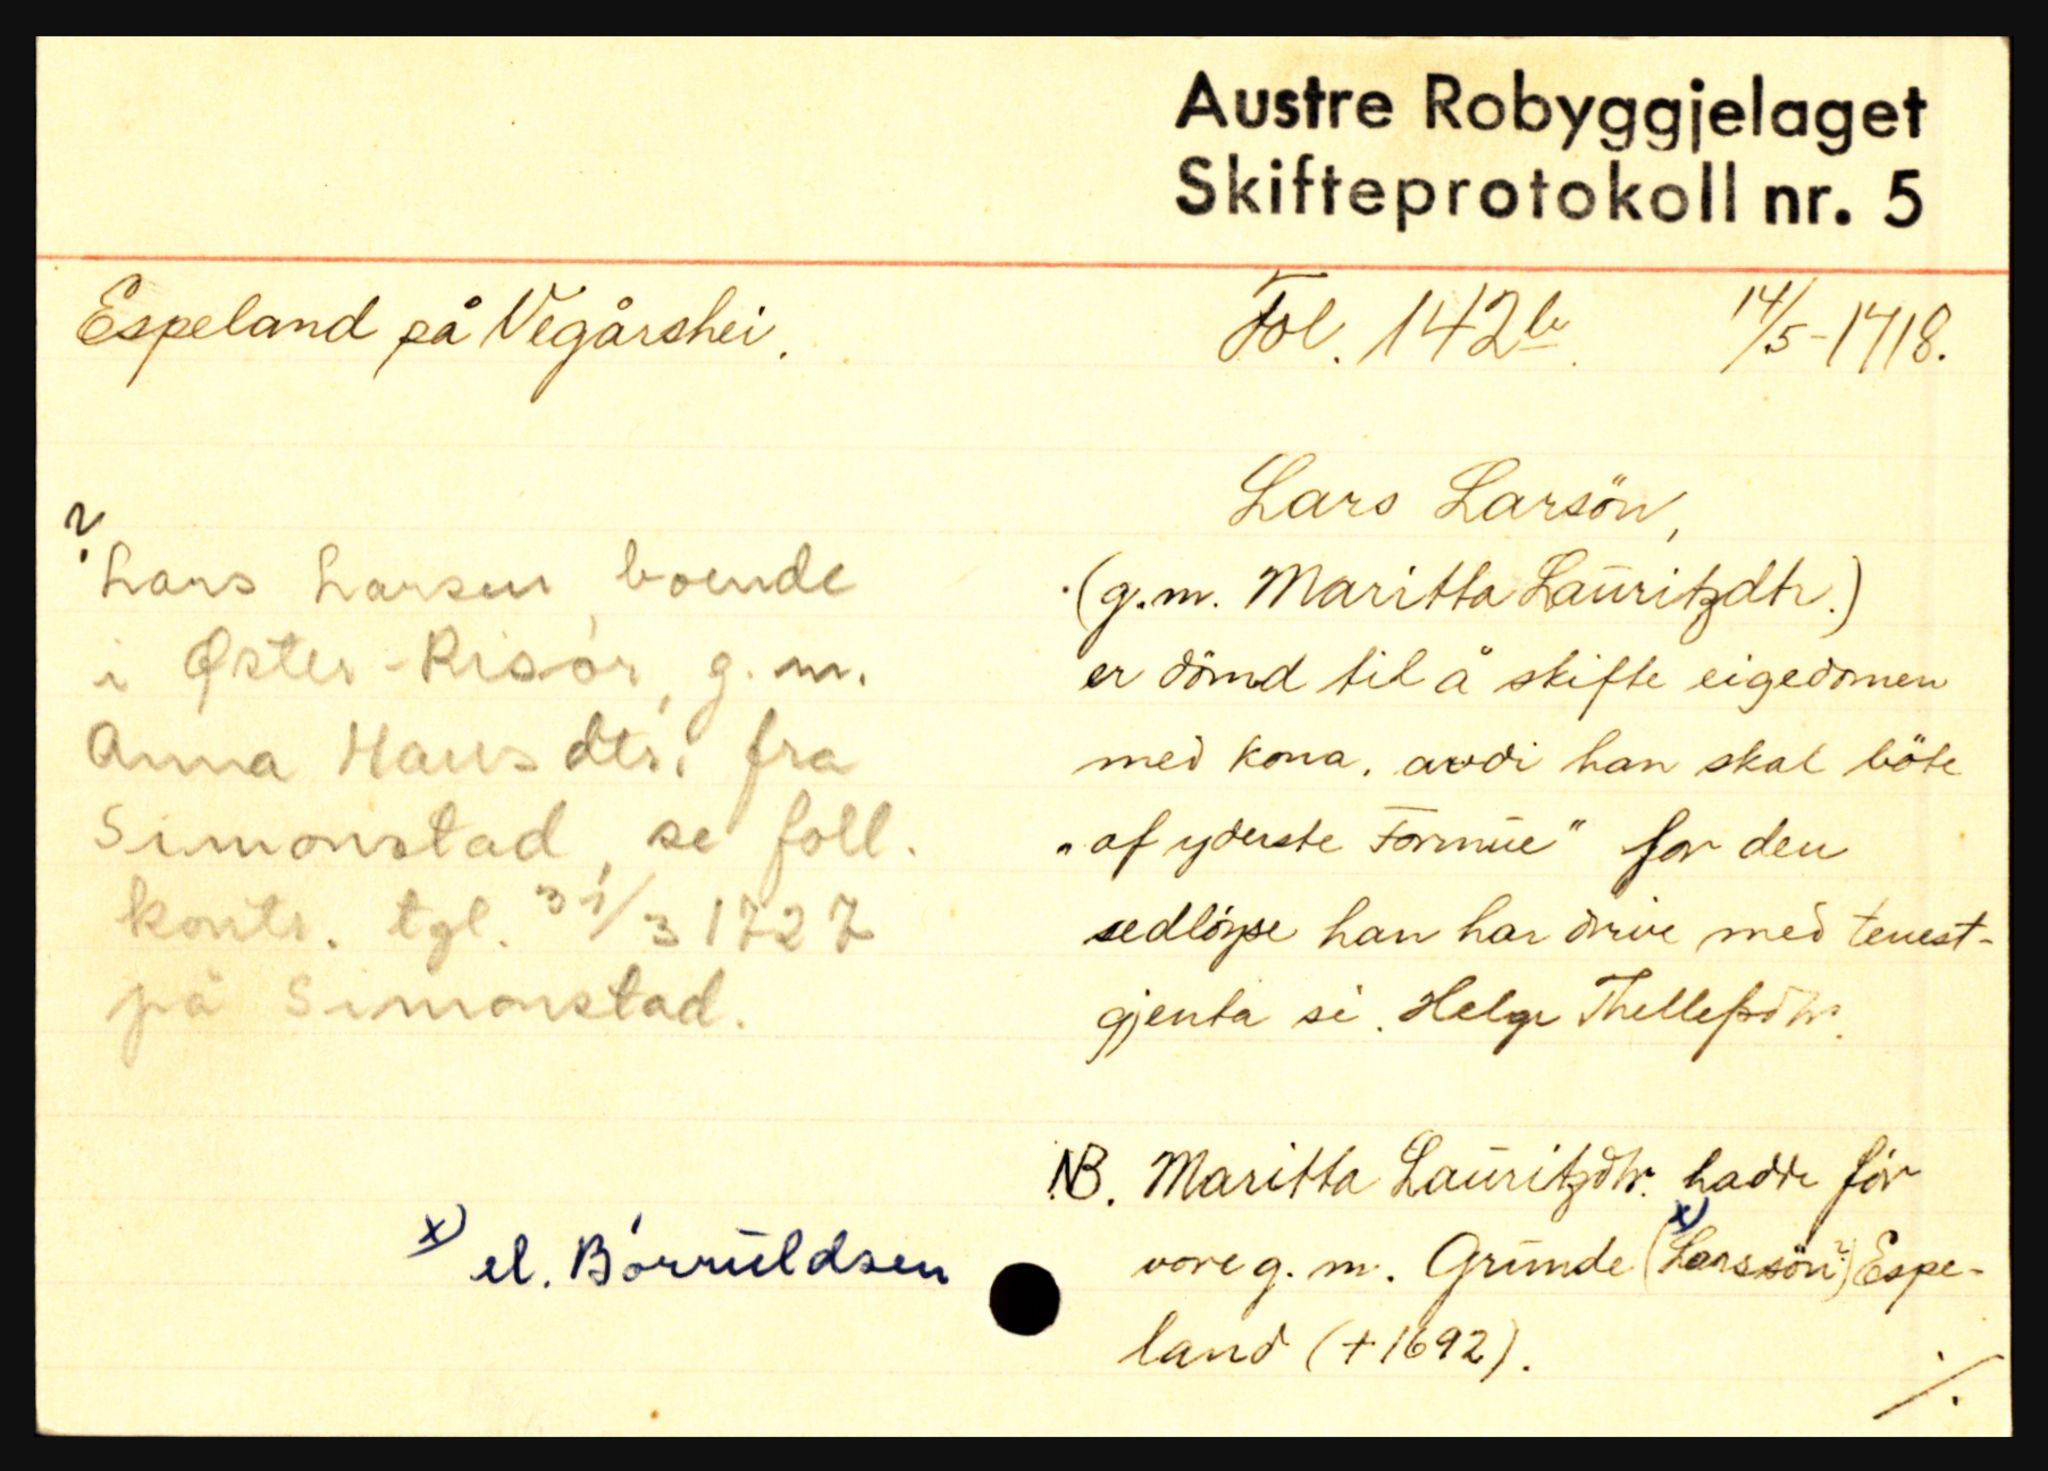 Austre Robyggjelaget
Skifteprotokoll nr. 5
Espeland på Vegårshei.
Fol. 142b. 14/5-1718.
Lars Larsön,
(g.m. Maritta Lauritzdtr.)
er dömd til å skifte eigedomen
med kona, avdi han skal böte
"af yderste Formue" for den
sedlöyse han har drive med tenest-
gjenta si. Helge Thellefsdtr.
NB. Maritta Lauritzdtr. hadde för
vore g.m. Grunde (Larssön?) x) Espe-
land (+1692).
./.
?
Lars Larsen, boende
i Øster-Risör, g.m.
Anna Hansdtr. fra
Simonstad, se foll.
kontr. tgl. 31/3 1727
på Simonstad.
x) el. Börruldsen